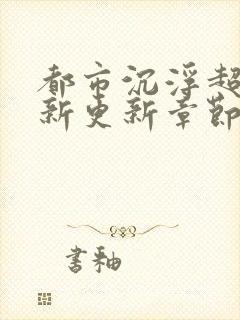 都市沉浮超
新更新章節
書釉